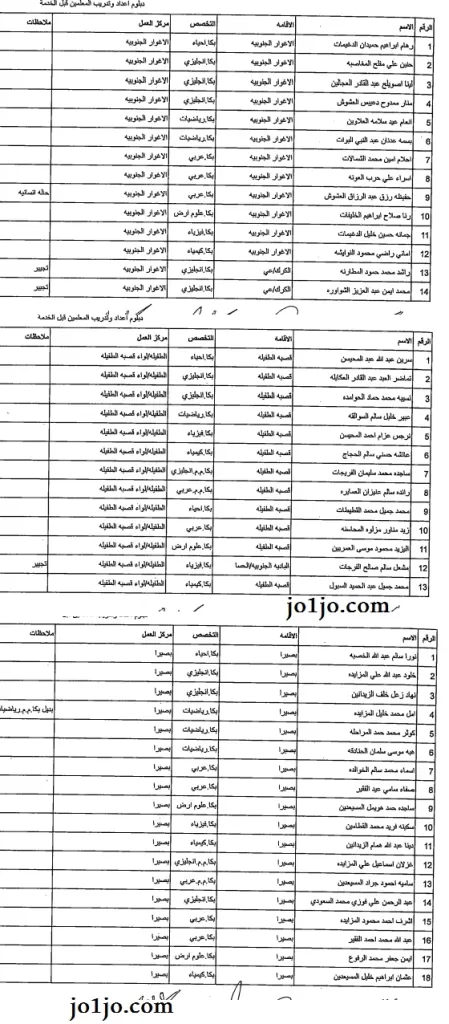 دبلوم اعداد وتدريب المعلمين قبل الخدمة
الرقم الاسم الاقامه التخصص مركز العمل ملاحظات
1 رهام ابراهيم حميدان الدغيمات الاغوار الجنوبيه بكا.احياء الاغوار الجنوبيه
2 حنين علي مفلح المخاصبه الاغوار الجنوبيه بكا.انجليزي الاغوار الجنوبيه
3 لينا اصويلح عبد القادر العجالين الاغوار الجنوبيه بكا.انجليزي الاغوار الجنوبيه
4 منار ممدوح دعيس العشوش الاغوار الجنوبيه بكا.انجليزي الاغوار الجنوبيه
5 انعام عيد سلامه العلاوين الاغوار الجنوبيه بكا.رياضيات الاغوار الجنوبيه
6 بسمه عدنان عبد النبي البوات الاغوار الجنوبيه بكا.رياضيات الاغوار الجنوبيه
7 احلام امين محمد الشمالات الاغوار الجنوبيه بكا.عربي الاغوار الجنوبيه
8 اسراء علي حرب العونه الاغوار الجنوبيه بكا.عربي الاغوار الجنوبيه
9 حفيظه رزق عبد الرزاق العشوش الاغوار الجنوبيه بكا.عربي الاغوار الجنوبيه حاله انسانيه
10 رنا صلاح ابراهيم الخليفات الاغوار الجنوبيه بكا.علوم ارض الاغوار الجنوبيه
11 جمانه حسين خليل الدغيمات الاغوار الجنوبيه بكا.فيزياء الاغوار الجنوبيه
12 اماني راضي محمود النوايشه الاغوار الجنوبيه بكا.كيمياء الاغوار الجنوبيه
13 راشد محمد حمود المطارنه الكرك/عي بكا.عربي الاغوار الجنوبيه تجيير
14 محمد ايمن عبد العزيز الشواوره الكرك/عي بكا.انجليزي الاغوار الجنوبيه تجيير
دبلوم اعداد وتدريب المعلمين قبل الخدمة
الرقم الاسم الاقامه التخصص مركز العمل ملاحظات
1 سرين عبد الله عبد المحيسن قصبه الطفيله بكا.احياء الطفيله/لواء قصبه الطفيله
2 تماضر العبد عبد القادر العكايله قصبه الطفيله بكا.انجليزي الطفيله/لواء قصبه الطفيله
3 نسيبه محمد حماد الحوامده قصبه الطفيله بكا.انجليزي الطفيله/لواء قصبه الطفيله
4 عبير خليل سالم السوالقه قصبه الطفيله بكا.رياضيات الطفيله/لواء قصبه الطفيله
5 نرجس عزام احمد المحيسن قصبه الطفيله بكا.فيزياء الطفيله/لواء قصبه الطفيله
6 عائشه حسني سالم الحجاج قصبه الطفيله بكا.كيمياء الطفيله/لواء قصبه الطفيله
7 ساجده محمد سليمان الفريجات قصبه الطفيله بكا.م.م.انجليزي الطفيله/لواء قصبه الطفيله
8 رائده سالم عنيزان العمايره قصبه الطفيله بكا.م.م.عربي الطفيله/لواء قصبه الطفيله
9 محمد جميل محمد القطيطات قصبه الطفيله بكا.احياء الطفيله/لواء قصبه الطفيله
10 زيد مناور مزلوه المحاسنه قصبه الطفيله بكا.عربي الطفيله/لواء قصبه الطفيله
11 اليزيد محمود موسى العمريين قصبه الطفيله بكا.علوم ارض الطفيله/لواء قصبه الطفيله
12 مشعل سالم صالح الفرجات الباديه الجنوبيه/الحسا بكا.فيزياء الطفيله/لواء قصبه الطفيله تجيير
13 محمد جميل عبد الحميد السبول قصبه الطفيله بكا.كيمياء الطفيله/لواء قصبه الطفيله
jo1jo.com
الرقم الاسم الاقامه التخصص مركز العمل ملاحظات
1 نورا سالم عبد الله الخصبه بصيرا بكا.احياء بصيرا
2 خلود عبد الله علي المزايده بصيرا بكا.انجليزي بصيرا
3 نهاد زعل خلف الزيدانين بصيرا بكا.انجليزي بصيرا
4 امل محمد خليل المزايده بصيرا بكا.رياضيات بصيرا بديل بكا.م.م.رياضيات
5 كوثر محمد حمد المراحله بصيرا بكا.رياضيات بصيرا
6 هبه موسى سلمان الحنادقه بصيرا بكا.رياضيات بصيرا
7 اسماء محمد سالم الخوالده بصيرا بكا.عربي بصيرا
8 صفاء سامي عبد الفقير بصيرا بكا.عربي بصيرا
9 ساجده حمد هويمل السبيعين بصيرا بكا.علوم ارض بصيرا
10 سكينه فريد محمد القطامين بصيرا بكا.فيزياء بصيرا
11 دينا عبد الله همام الزيدانين بصيرا بكا.كيمياء بصيرا
12 غزلان اسماعيل علي المزايده بصيرا بكا.م.م.انجليزي بصيرا
13 ساميه احمود جراد المسيعدين بصيرا بكا.م.م.عربي بصيرا
14 عبد الرحمن علي فوزي محمد السعودي بصيرا بكا.انجليزي بصيرا
15 اشرف احمد محمود المزايده بصيرا بكا.عربي بصيرا
16 عبد الله محمد احمد الفقير بصيرا بكا.عربي بصيرا
17 ايمن جعفر محمد الرفوع بصيرا بكا.علوم ارض بصيرا
18 عثمان ابراهيم خليل المسيعدين بصيرا بكا.كيمياء بصيرا
jo1jo.com